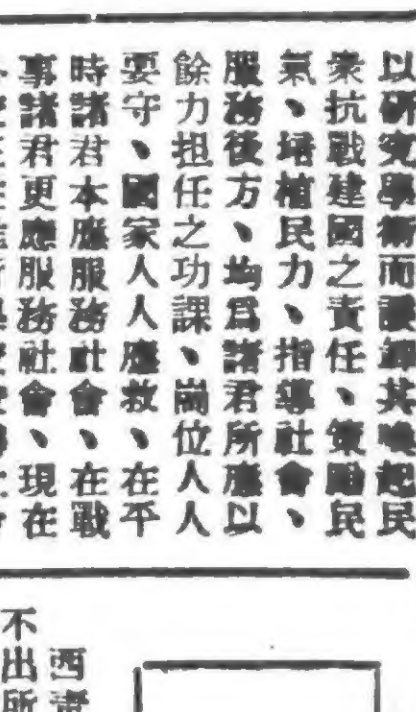 以研究學術而諉卸其喚起民
衆抗戰建國之責任、策勵民
氣、培植民力、指導社會、
服務後方、均爲諸君所應以
餘力担任之功課、崗位人人
要守、國家人人應救、在平
時諸君本應服務社會、在戰
事諸君更應服務社會、現在
西
不出所